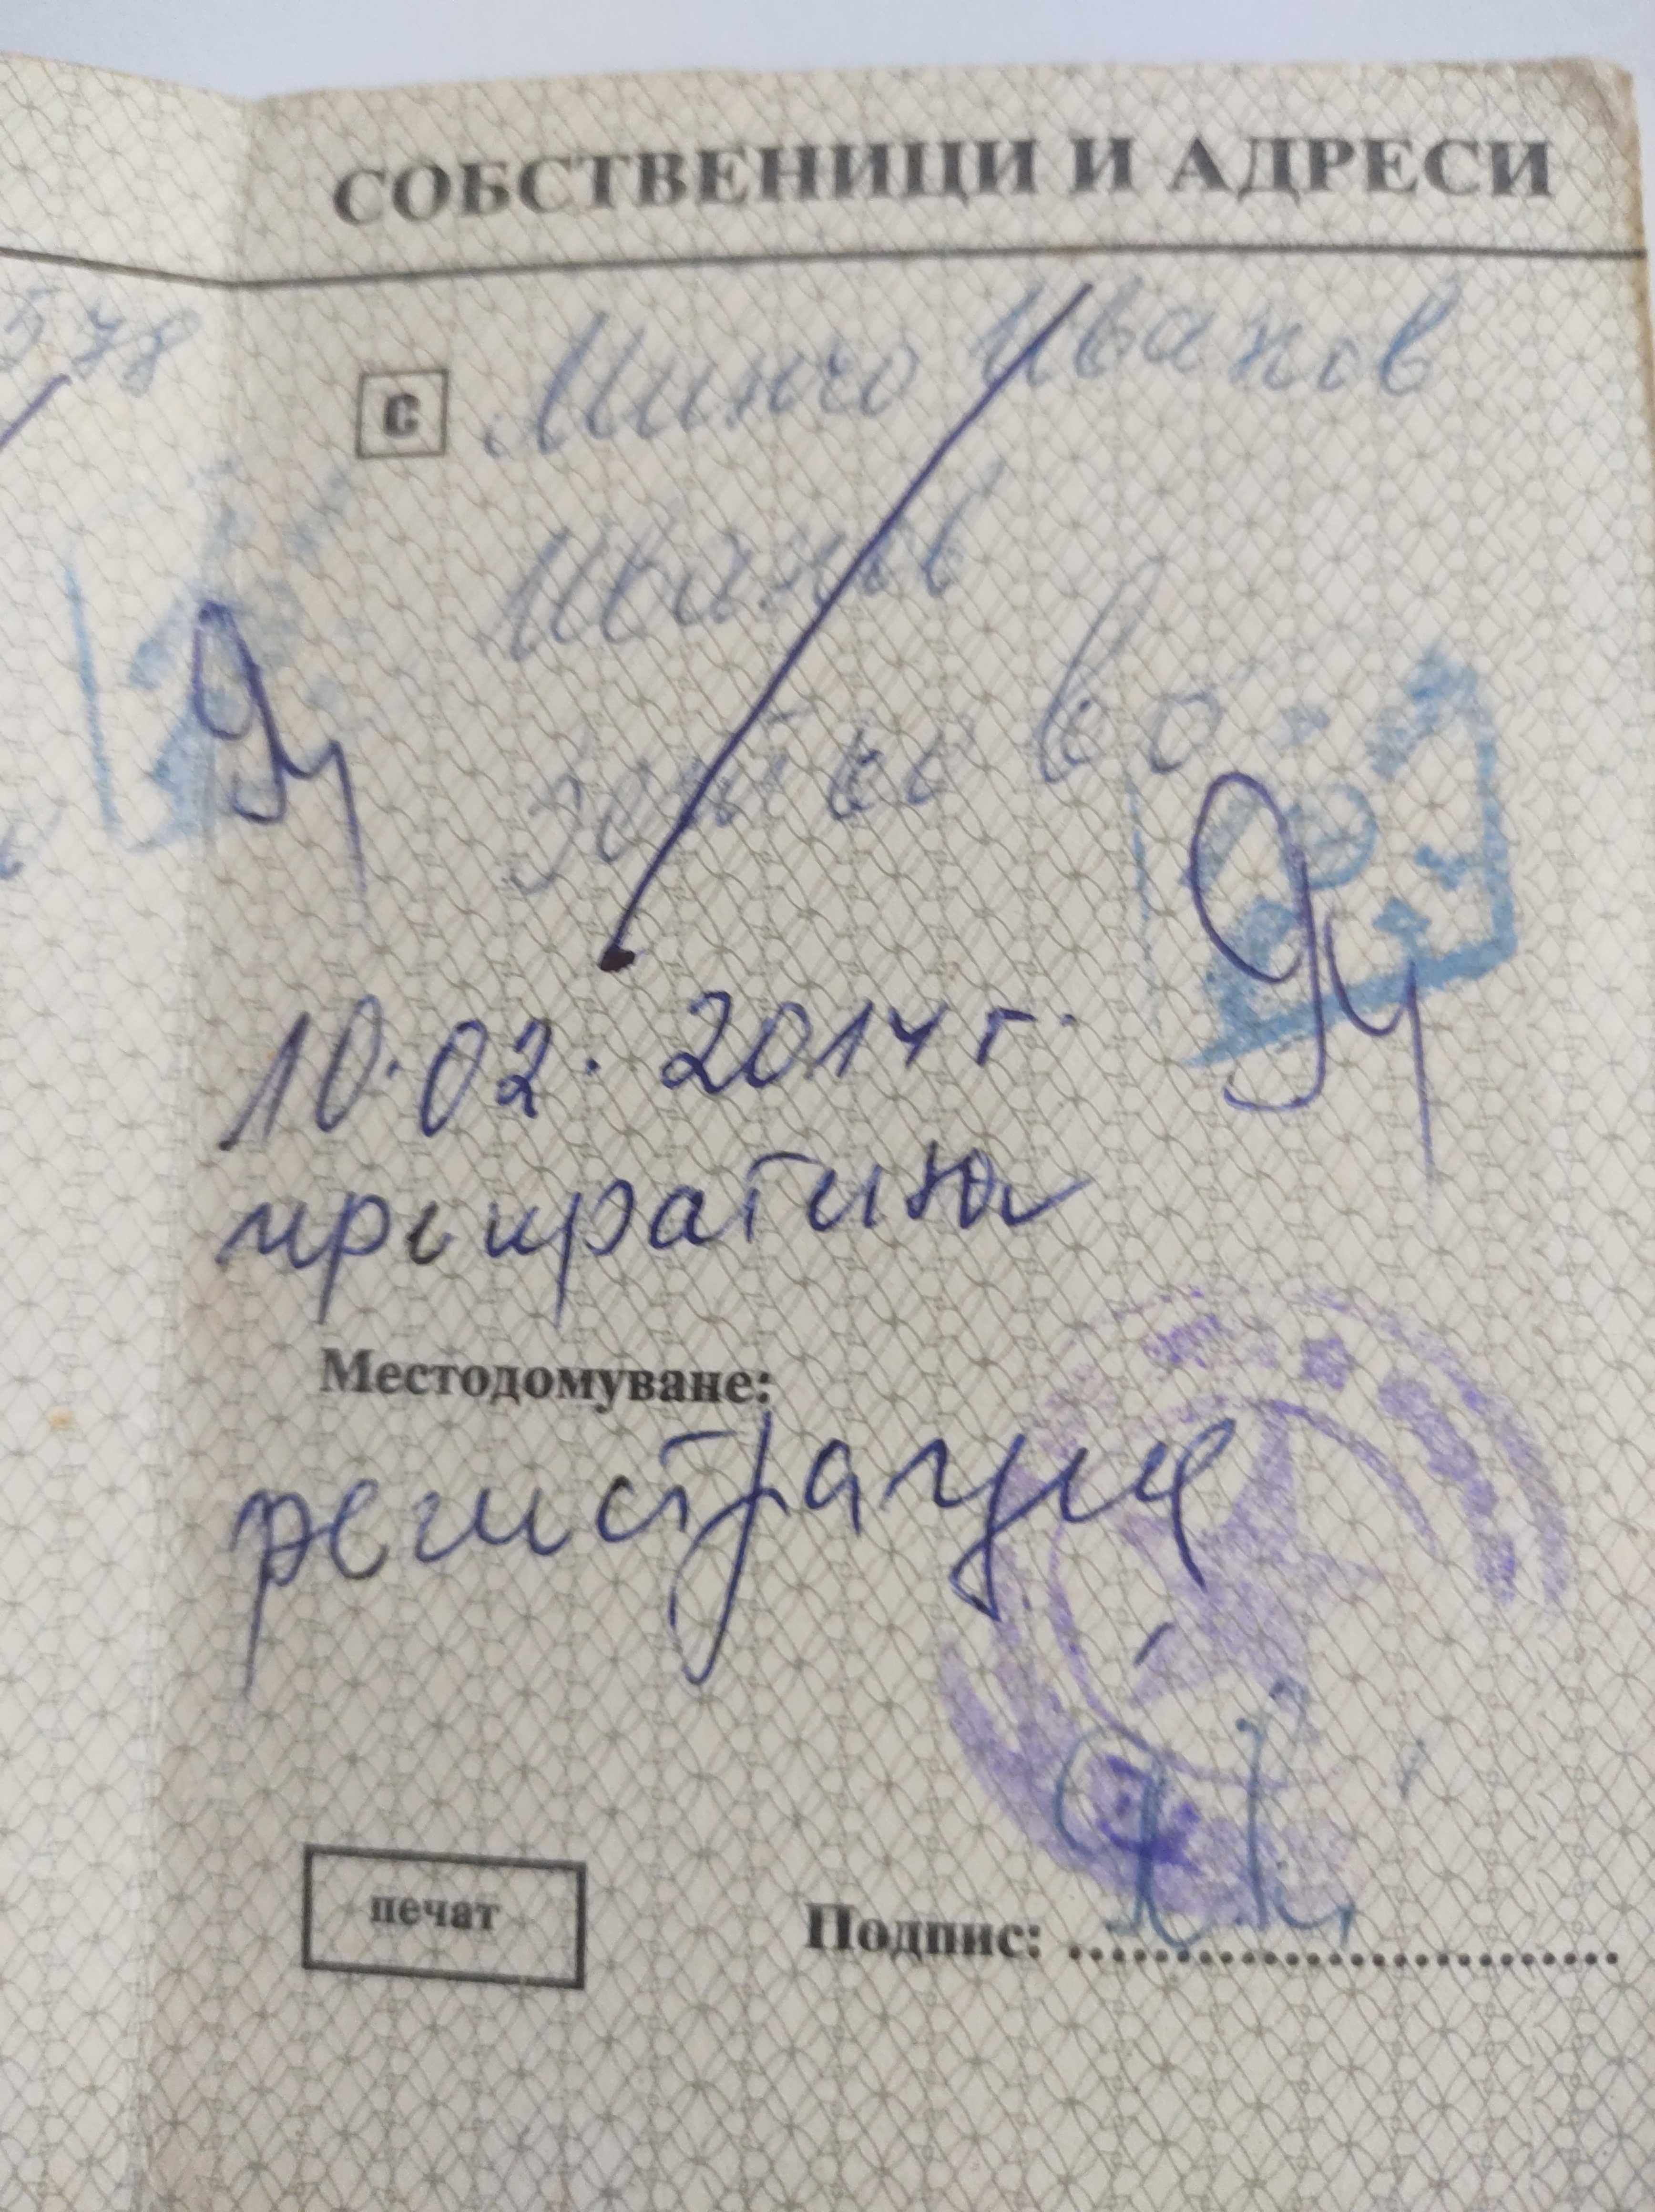 СОБСТВЕНИЦИ И АДРЕСИ
578
С Минчо Иванов
Иванов
10.02.2014 г.
прекратена
Местодомуване:
регистрация
печат
Подпис: